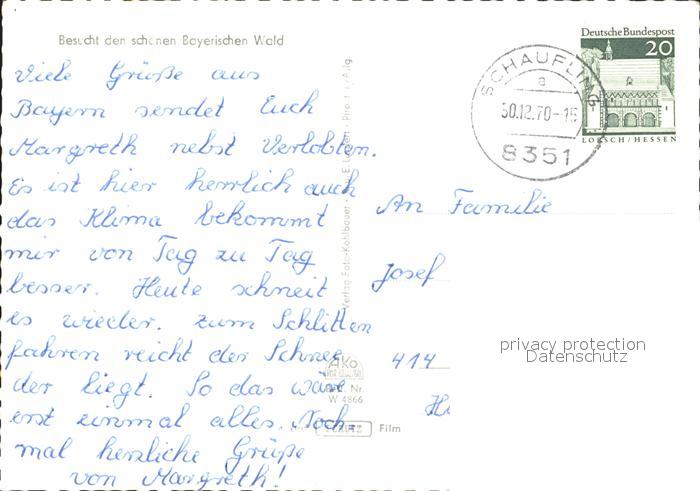 Besucht den schönen Bayerischen Wald
Viele Grüße aus
Bayern sendet Euch
Margreth nebst Verlobten.
Es ist hier herrlich auch
das Klima bekommt
mir von Tag zu Tag
besser. Heute schneit
es wieder. zum Schlitten
fahren reicht der Schnee
der liegt. So das wäre
erst einmal alles. Noch-
mal herzliche Grüße
von Margreth!
Verlag Foto-Kohlbauer
AKO
Nr.
W 4866
Film
Deutsche Bundespost
20
LORSCH/HESSEN
SCHAUFLING
a
30.12.70-15
8351
An Familie
Josef
414
privacy protection
Datenschutz